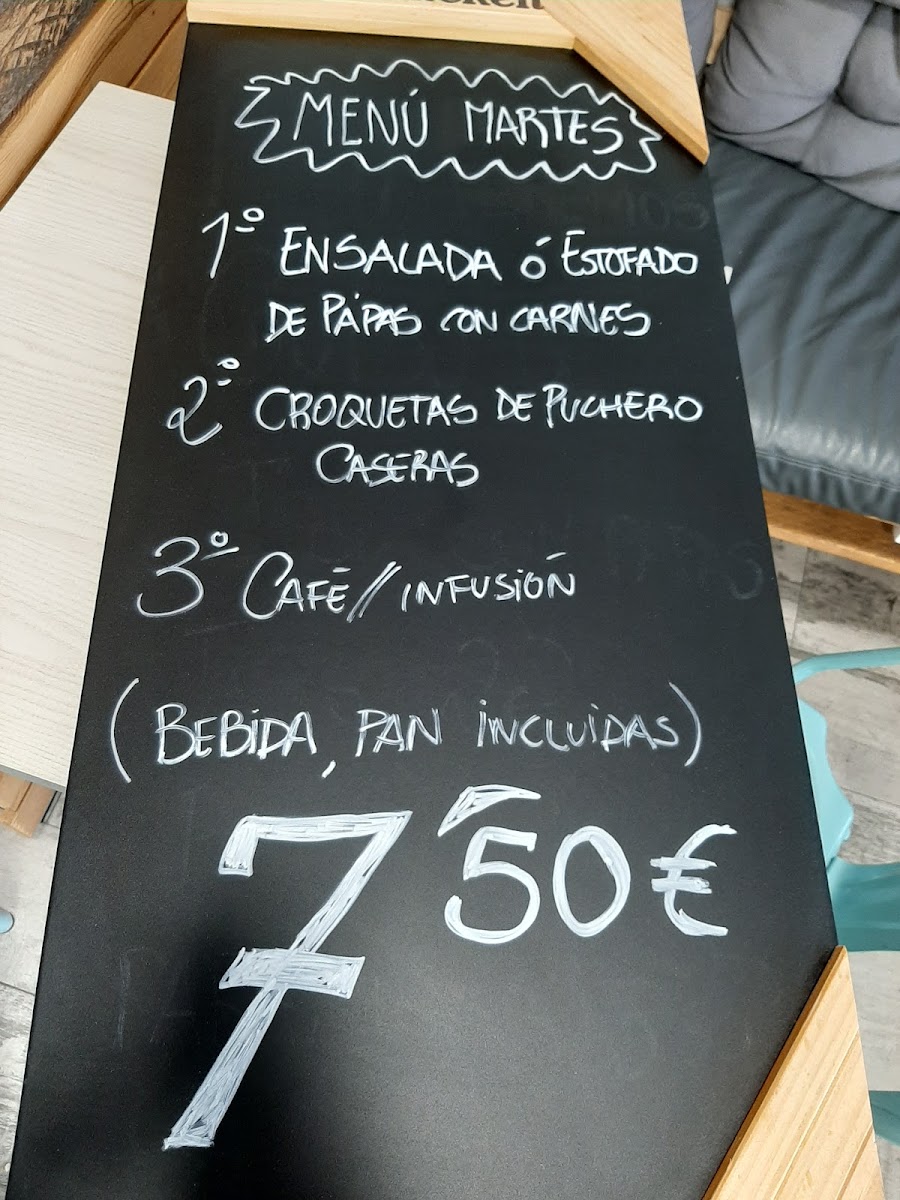 MENÚ MARTES
1º ENSALADA ó ESTOFADO
DE PAPAS CON CARNES
2º CROQUETAS DE PUCHERO
CASERAS
3º CAFÉ // INFUSIÓN
(BEBIDA, PAN INCLUIDAS)
7'50€